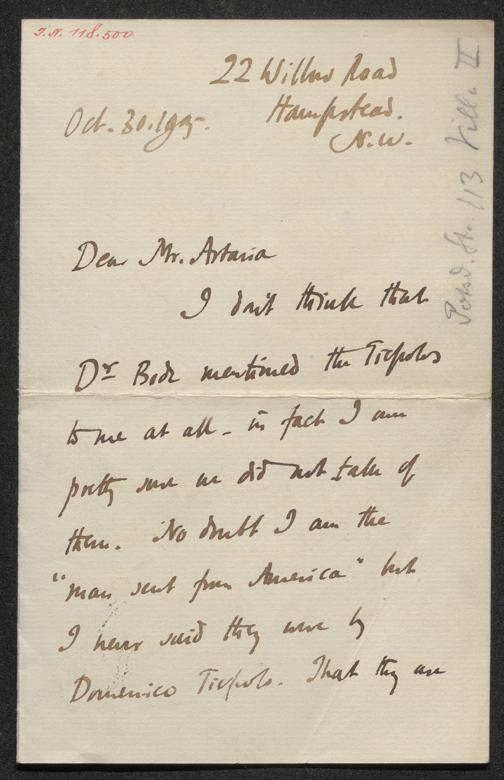 I.N. 118.500
22 Willow Road
Hampstead.
N.W.
Oct. 30. 1905.
Dear Mr. Artaria
I don't think that
Dr Bode mentioned the Tiepolos
to me at all - in fact I am
pretty sure we did not talk of
them. No doubt I am the
"man sent from America" but
I never said they were by
Domenico Tiepolo. That they are
Potsd. Str. 113 Villa II